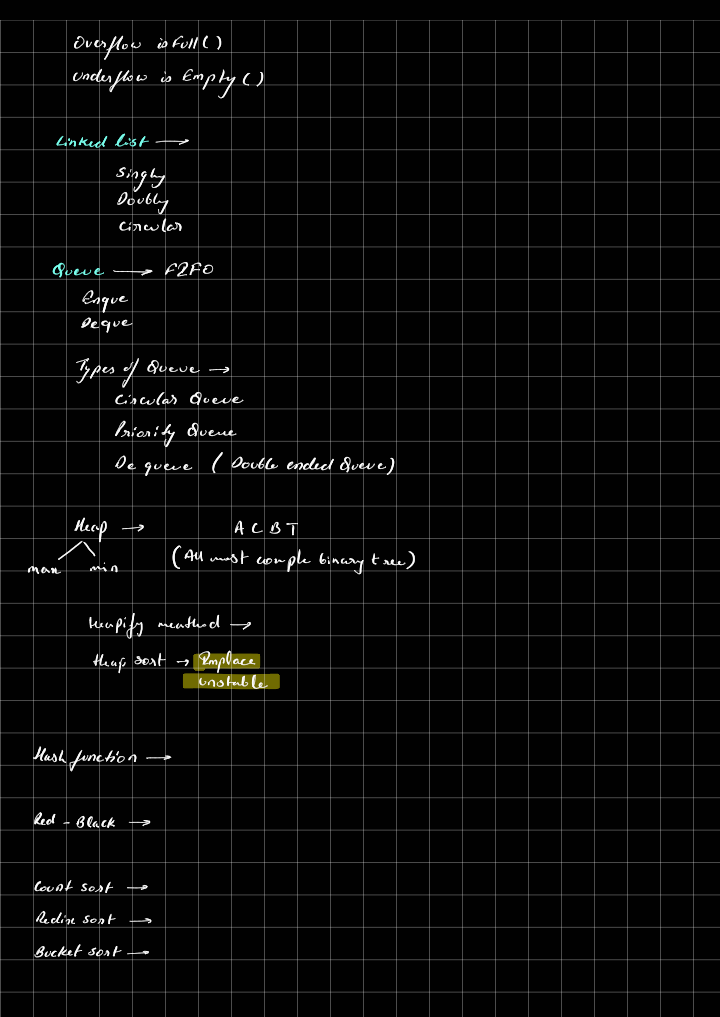 Overflow isFull()
Underflow is Empty()
Linked list →
Singly
Doubly
Circular
Queue → FIFO
Enque
Deque
Types of Queue →
Circular Queue
Priority Queue
De queue ( Double ended Queue)
Heap → A C B T
max min (All most comple binary tree)
Heapify meathod →
Heap sort → Inplace
unstable
Hash function →
Red - Black →
Count sort →
Redix sort →
Bucket sort →